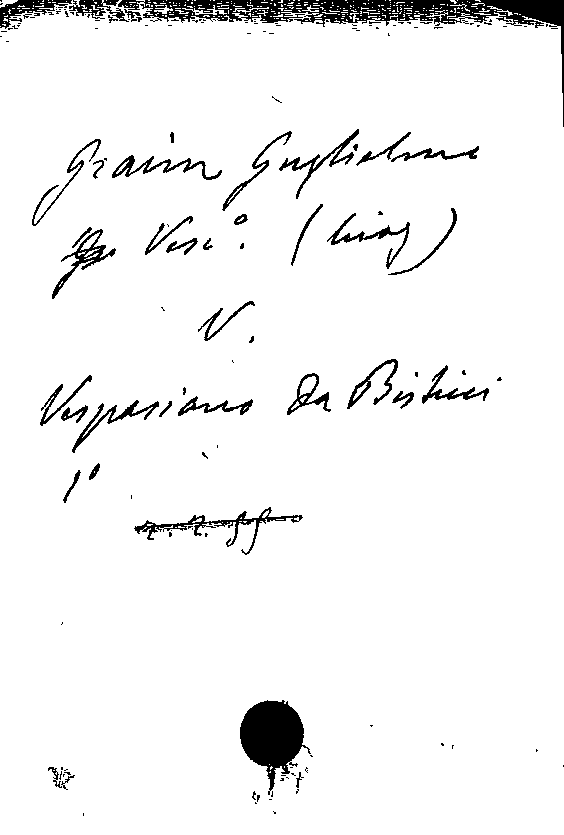 Graim Guglielmo
Vesc°. (biog)
V.
Vespasiano da Bisticci
1°